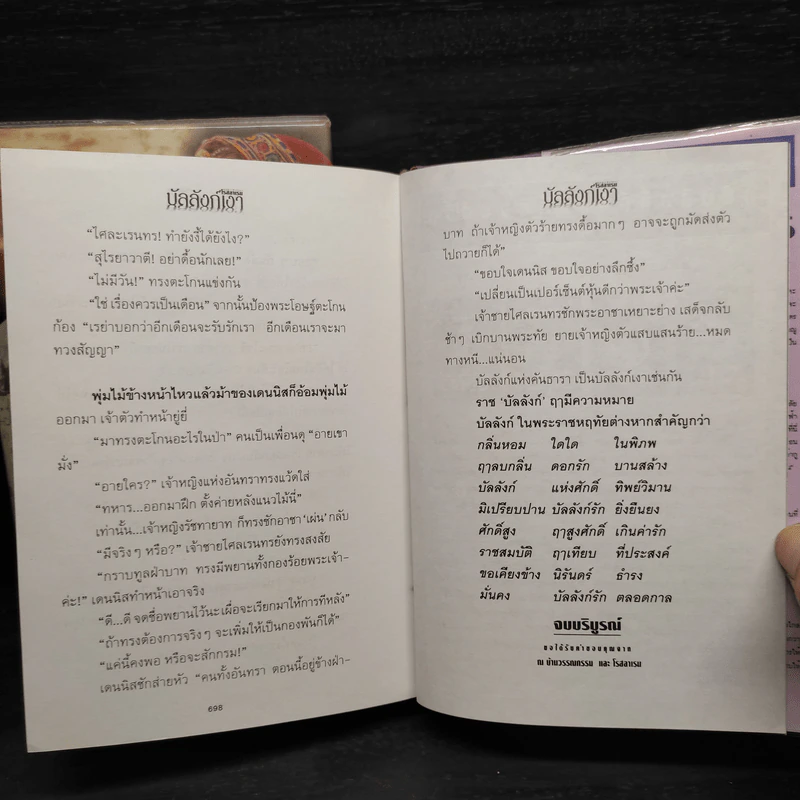 บัลลังก์เงา
โรสลาเรน
“ไศละเรนทร! ทำยังงี้ได้ยังไง?”
“สุไรยาวาตี! อย่าดื้อนักเลย!”
“ไม่มีวัน!” ทรงตะโกนแข่งกัน
“ใช่ เรื่องควรเป็นเดือน” จากนั้นป้องพระโอษฐ์ตะโกน
ก้อง “เรย่าบอกว่าอีกเดือนจะรับรักเรา อีกเดือนเราจะมา
ทวงสัญญา”
พุ่มไม้ข้างหน้าไหวแล้วม้าของเดนนิสก็อ้อมพุ่มไม้
ออกมา เจ้าตัวทำหน้ายู่ยี่
“มาทรงตะโกนอะไรในป่า” คนเป็นเพื่อนดุ “อายเขา
มั่ง”
“อายใคร?” เจ้าหญิงแห่งอันทราทรงแว้ดใส่
“ทหาร...ออกมาฝึก ตั้งค่ายหลังแนวไม้นี่”
เท่านั้น...เจ้าหญิงรัชทายาท ก็ทรงชักอาชา ‘เผ่น’ กลับ
“มีจริงๆ หรือ?” เจ้าชายไศลเรนทรยังทรงสงสัย
“กราบทูลฝ่าบาท ทรงมีพยานทั้งกองร้อยพระเจ้า-
ค่ะ!” เดนนิสทำหน้าเอาจริง
“ดี...ดี จดชื่อพยานไว้นะเผื่อจะเรียกมาให้การทีหลัง”
“ถ้าทรงต้องการจริงๆ จะเพิ่มให้เป็นกองพันก็ได้”
“แค่นี้คงพอ หรือจะสักกรม!”
เดนนิสซักส่ายหัว “คนทั้งอันทรา ตอนนี้อยู่ข้างฝ่า-
698
บัลลังก์เงา
โรสลาเรน
บาท ถ้าเจ้าหญิงตัวร้ายทรงดื้อมากๆ อาจจะถูกมัดส่งตัว
ไปถวายก็ได้”
“ขอบใจเดนนิส ขอบใจอย่างลึกซึ้ง”
“เปลี่ยนเป็นเปอร์เซ็นต์หุ้นดีกว่าพระเจ้าค่ะ”
เจ้าชายไศลเรนทรชักพระอาชาเหยาะย่าง เสด็จกลับ
ช้าๆ เบิกบานพระทัย ยายเจ้าหญิงตัวแสบแสนร้าย...หมด
ทางหนี...แน่นอน
บัลลังก์แห่งคันธารา เป็นบัลลังก์เงาเช่นกัน
ราช ‘บัลลังก์’ ฤๅมีความหมาย
บัลลังก์ ในพระราชหฤทัยต่างหากสำคัญกว่า
กลิ่นหอม ใดใด ในพิภพ
ฤๅลบกลิ่น ดอกรัก บานสล้าง
บัลลังก์ แห่งศักดิ์ ทิพย์วิมาน
มิเปรียบปาน บัลลังก์รัก ยิ่งยืนยง
ศักดิ์สูง ฤๅสูงศักดิ์ เกินค่ารัก
ราชสมบัติ ฤๅเทียบ ที่ประสงค์
ขอเคียงข้าง นิรันดร์ ธำรง
มั่นคง บัลลังก์รัก ตลอดกาล
จบบริบูรณ์
ขอได้รับคำขอบคุณจาก
ณ บ้านวรรณกรรม และ โรสลาเรน